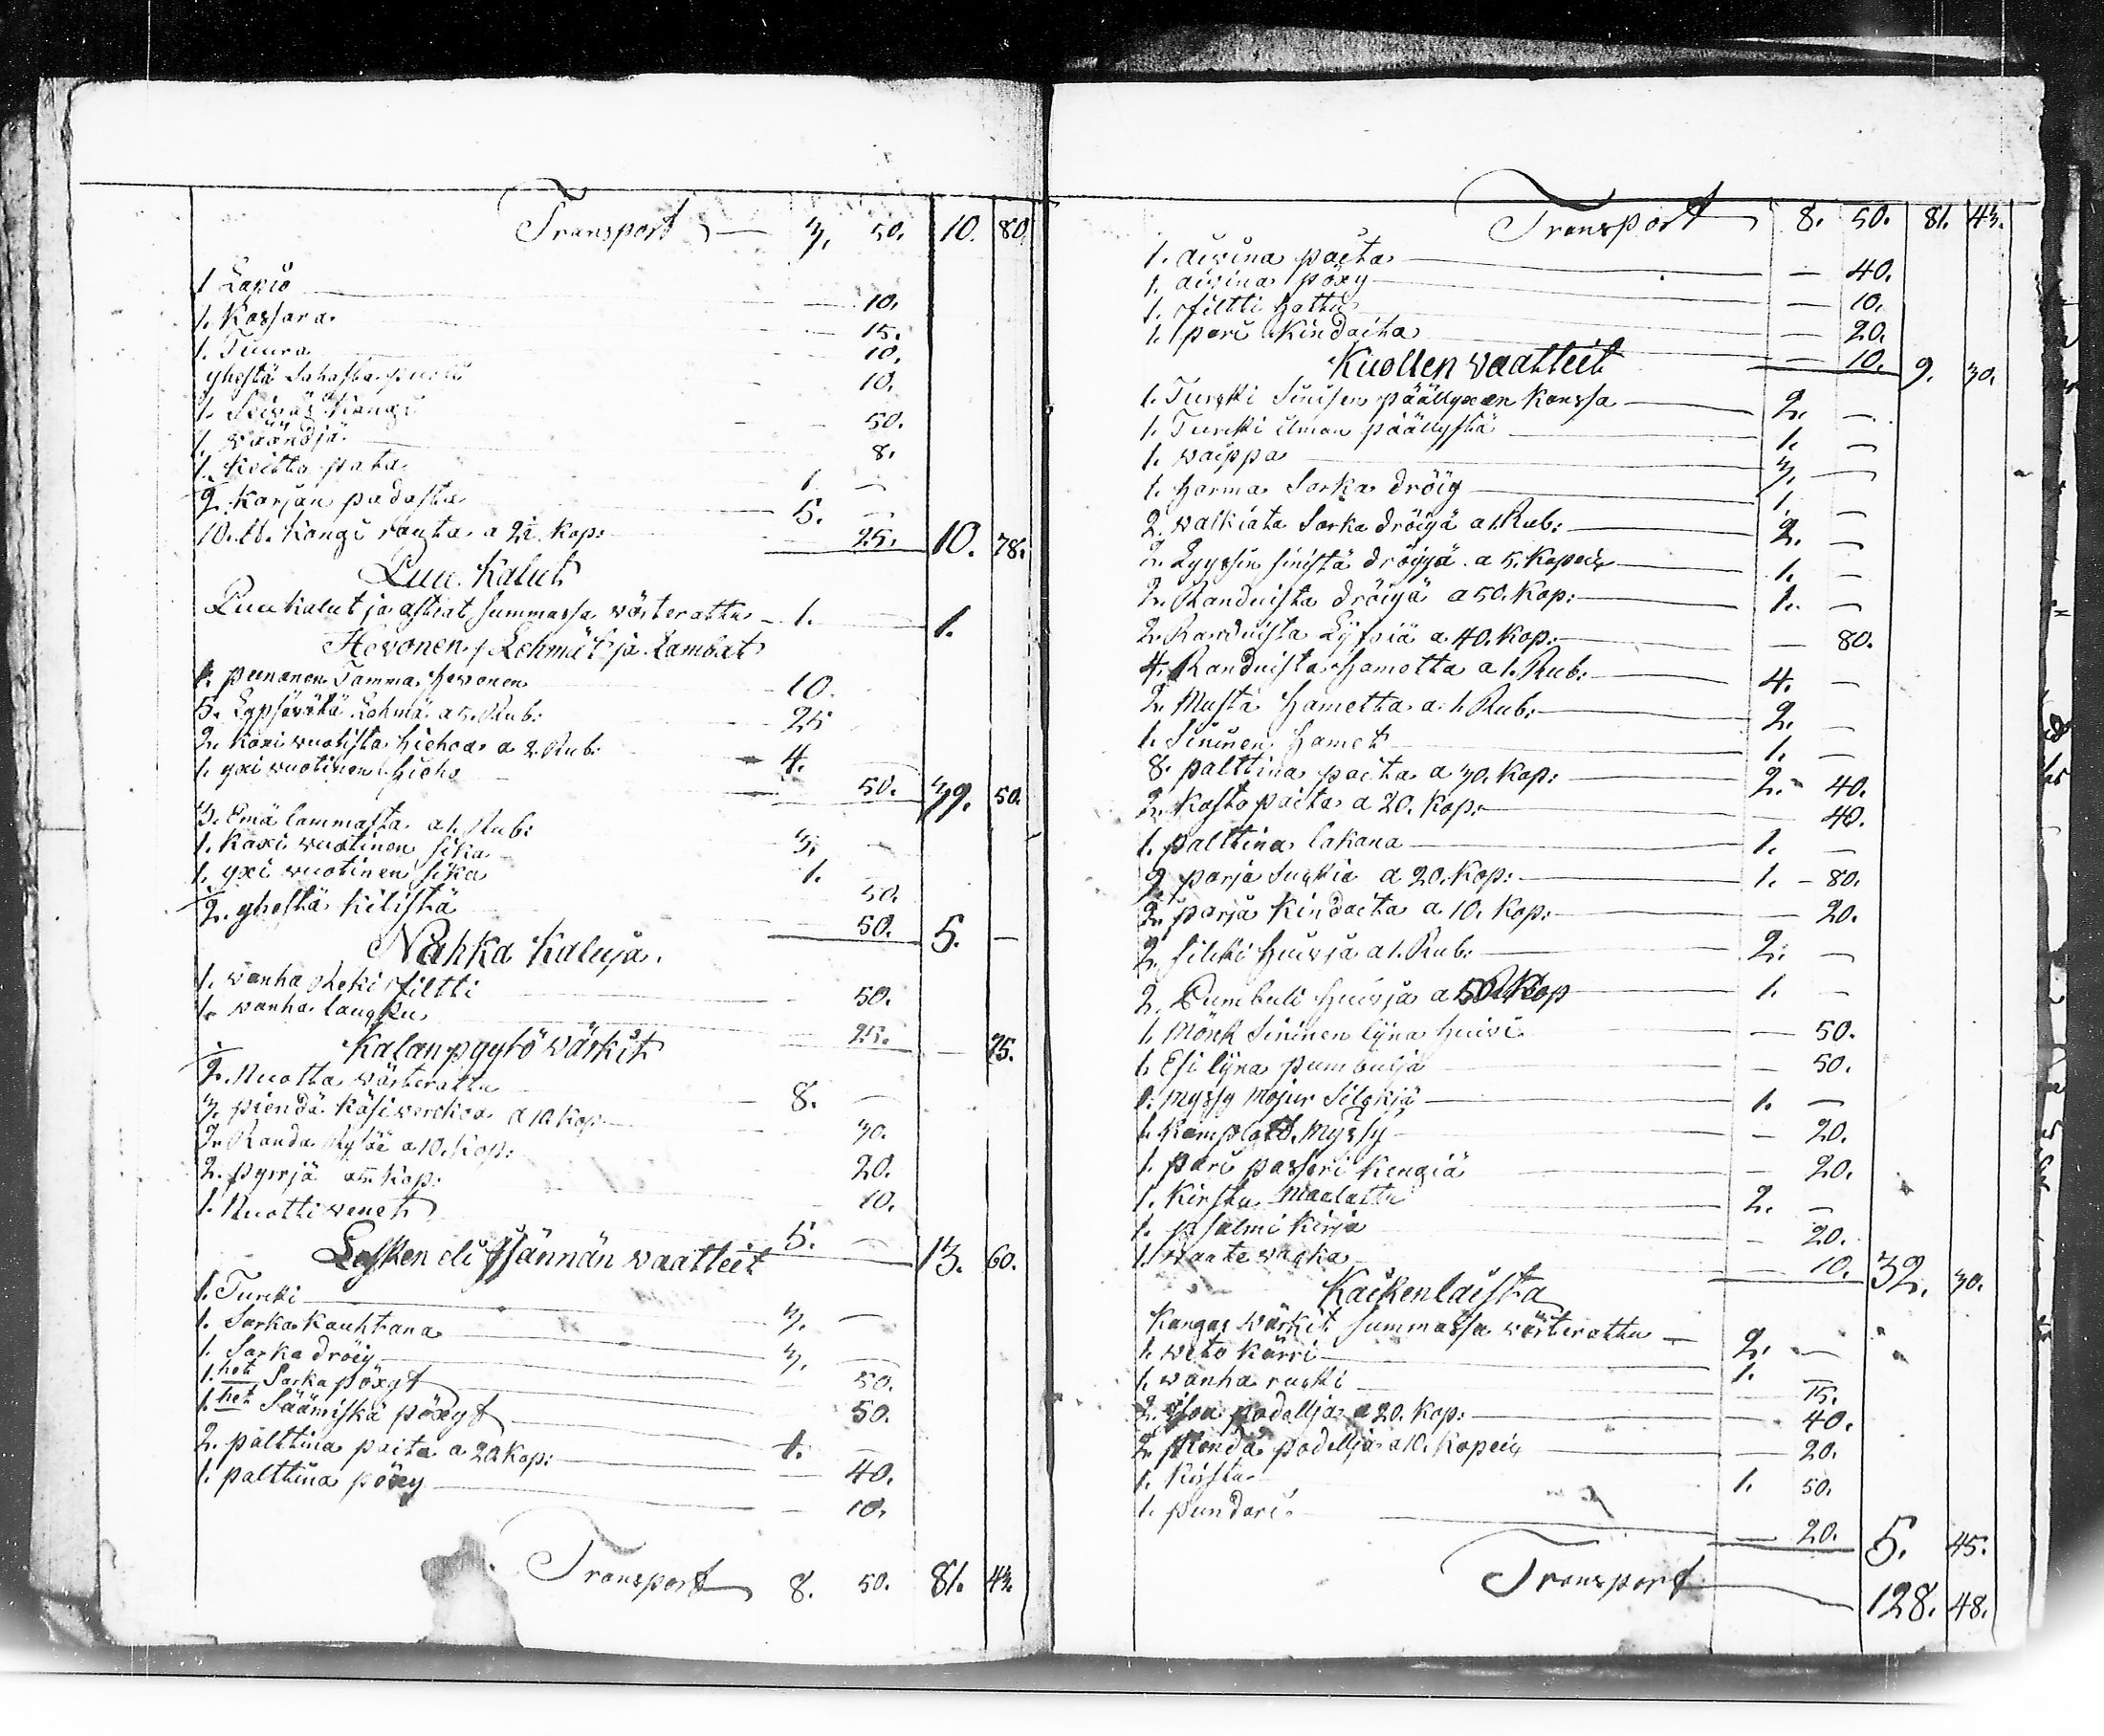 Transport — 3. 50. 10. 80.
1 Lapio — 10.
1. Kassara — 15.
1. Tuura — 10.
yhestä Sahasta puoli — 10.
1. Seiwäs Kangi — 50.
1. wäändjä — 8.
1. Keitto pata 1. —
2. Karjan padasta 5. —
10. ℔. Kangi rauta a 2½ Kop: — 25. 10. 78.
Puu Kalut
Puukalut ja astiat summassa wärterattu — 1. — 1.
Hevonen, Lehmät ja Lambat
1. punanen Tamma hewonen 10.
5. Lypsäwätä Lehmä a 5. Rub: 25
2. Kaxi wuotista hiehoa a 2. Rub: 4.
1. yxi wuotinen hieho — 50. 39. 50.
3. Emä lammasta a 1. Rub: 3. —
1. Kaxi wuotinen sika 1. —
1. yxi wuotinen sika 50.
2. yhestä kilistä 50. 5. —
Nahka Kaluja.
1. wanha Reki filtti 50.
1. wanha laugku 25. — 75.
Kalanpyytö wärkit
2. Nuotta wärterattu 8. —
3. piendä käsi werckoa a 10. Kop: 30.
2. Randa Rysää a 10. Kop: 20.
2. pyrrjä a 5. Kop: 10.
1. Nuotti wenet 5. — 13. 60.
Lesken eli Isännän waatteet
1. Turcki 3. —
1. Sarka Kauhtana 3. —
1. Sarka dröig 50.
1. het Sarka pöxyt 50.
1. het Säämiskä pöxyt 1. —
2. palttina paita a 20. Kop: — 40.
1. palttina pöxy — 10.
Transport 8. 50. 81. 43.
Transport 8. 50. 81. 43.
1. aiwina paita — 40.
1. aiwina pöxy — 10.
1. filtti hattu — 20.
1. pari Kindaita — 10. 9. 30.
Kuollen waatteet
1. Turcki Sinisen päällyxen Kanssa 2. —
1. Turcki ilman päällystä 1. —
1. waippa 3. —
1. harma Sarka dröig 1. —
2. walkiata Sarka dröigä a 1. Rub: 2. —
2. sinistä dröigä a 5. Kopeic 1. —
2. Randuista dröigä a 50. Kop: 1. —
2. Randuista a 40. Kop: — 80.
4. Randuista Hametta a 1. Rub: 4. —
2. Musta Hametta a 1. Rub: 2. —
1. Sininen Hamet 1. —
8. palttina paita a 30. Kop: 2. 40.
2. Kasto paita a 20. Kop: — 40.
1. palttina lakana 1. —
9. parja Sugkia a 20. Kop: 1. 80.
2. parja Kindaita a 10. Kop: — 20.
2. silcki huivja a 1. Rub: 2. —
2. Pumbuli huivja a 50 Kop 1. —
1. Mörk Sininen lijna huivi — 50.
1. Esi lijna pumbulja — 50.
myssy Mojur Silckiä 1. —
1. Myssy — 20.
1. pari passari Kengiä — 20.
1. Kirstu maalattu 2. —
1. psalmi Kirja — 20.
1. waate wacka — 10. 32. 30.
Kaikenlaista
Kangas wärkit summassa wärterattu — 2. —
1. weto kärri 1. —
1. wanha rucki 15.
2. isoa padellja a 20. Kop: — 40.
2. piendä padellja a 10. Kopeic — 20.
1. Kirstu 1. 50.
1. pundari — 20. 5. 45.
Transport 128. 48.